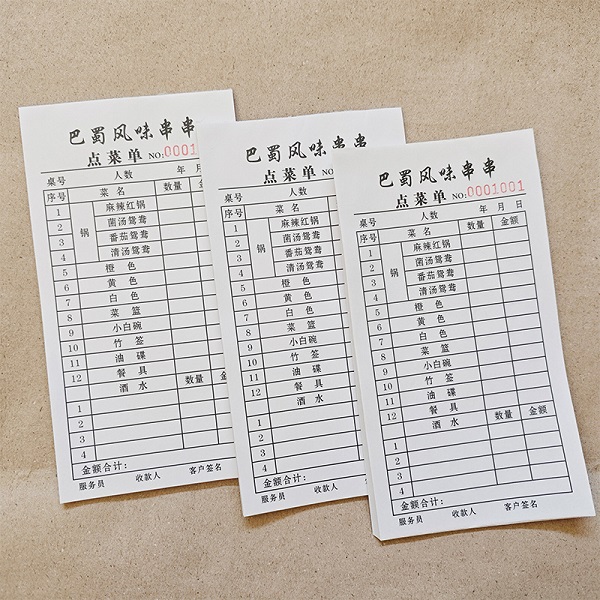 巴蜀风味串串
点菜单 NO:0001
年 月
桌号 人数
序号 菜名 数量 金
1 锅 麻辣红锅
2 菌汤鸳鸯
3 番茄鸳鸯
4 清汤鸳鸯
5 橙色
6 黄色
7 白色
8 菜篮
9 小白碗
10 竹签
11 油碟
12 餐具
酒水 数量 金
1
2
3
4
金额合计:
服务员 收款人 客户签名
巴蜀风味串串
点菜单 NO:
桌号 人数
序号 菜名
1 锅 麻辣红锅
2 菌汤鸳鸯
3 番茄鸳鸯
4 清汤鸳鸯
5 橙色
6 黄色
7 白色
8 菜篮
9 小白碗
10 竹签
11 油碟
12 餐具
酒水
1
2
3
4
金额合计:
服务员 收款人
巴蜀风味串串
点菜单 NO:0001001
桌号 人数 年 月 日
序号 菜名 数量 金额
1 锅 麻辣红锅
2 菌汤鸳鸯
3 番茄鸳鸯
4 清汤鸳鸯
5 橙色
6 黄色
7 白色
8 菜篮
9 小白碗
10 竹签
11 油碟
12 餐具
酒水 数量 金额
1
2
3
4
金额合计:
服务员 收款人 客户签名